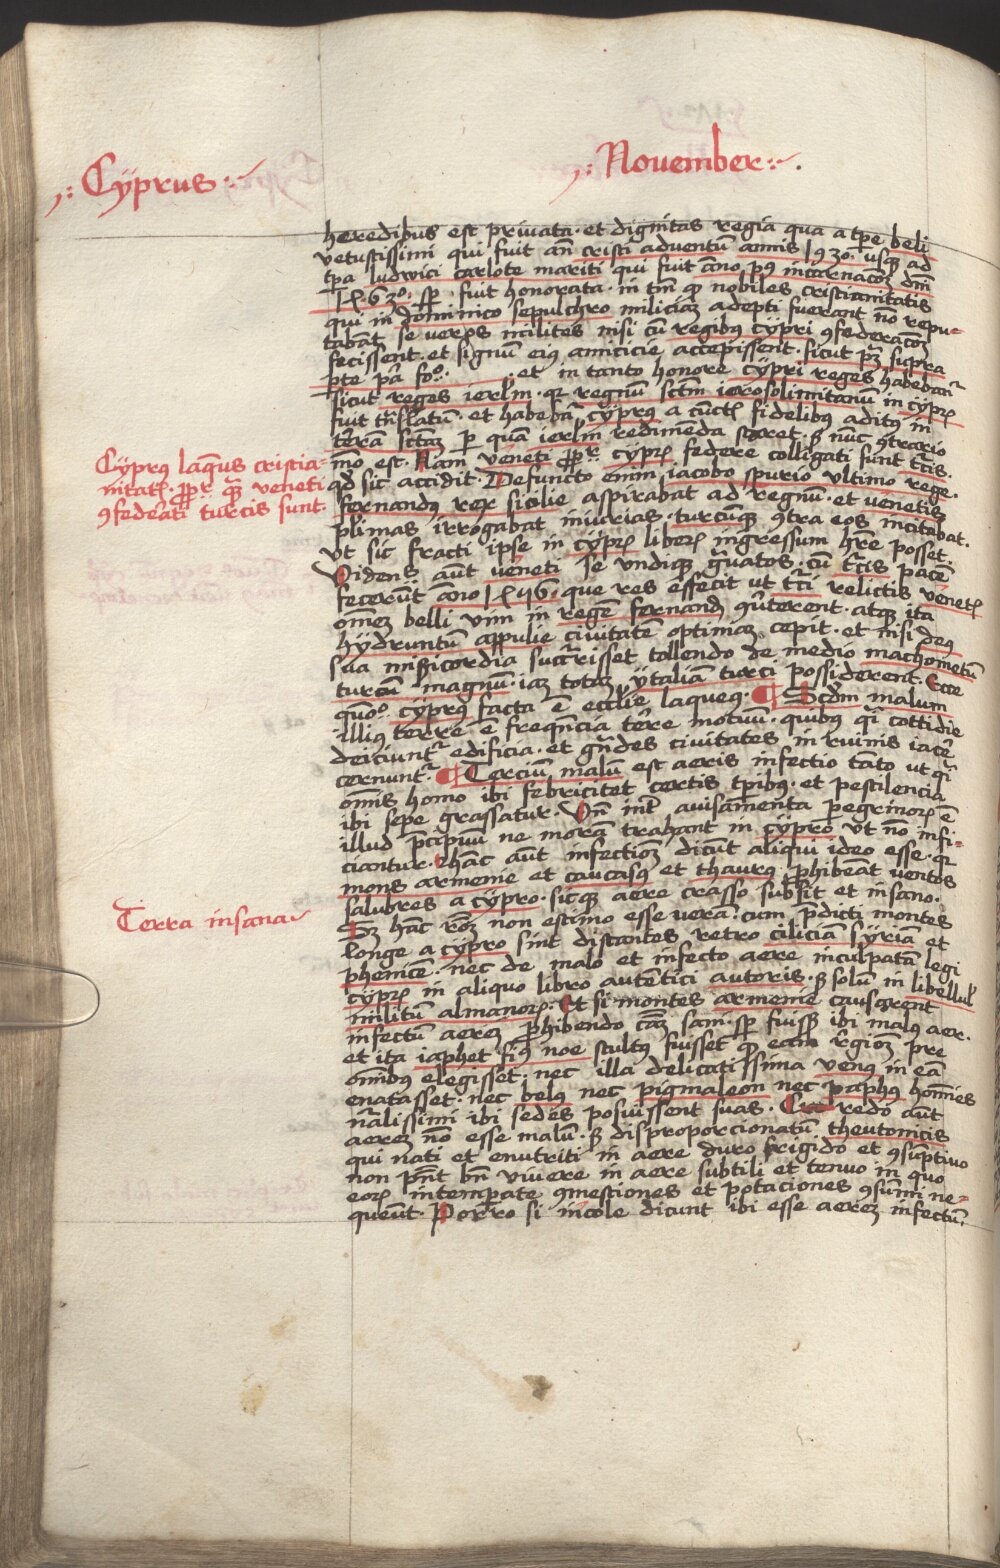 Cÿprus
November
heredibus est privata · et dignitas regia qua a tp̅e beli
vetustissimi qui fuit an̅ cristi adventu̅ annis 1930 · usq₃ ad
tp̅a ludwici carlote mariti qui fuit a̅no p⁹ incarnac̅o₃ dn̅i
sp̅ · fuit honorata · in tm̅ q nobiles cristianitatis
qui in dominico sepulchro miliciam adepti fuerant no̅ repu-
tabāt se veros milites nisi cu̅ regibus cypri ꝯfederac̅o₃
fecissent · et signu̅ eius amicicie accepissent · sicut p₃ supra
p̅te p̅a fo̅ · et in tanto honore cÿpri reges habebant̅
sicut reges ierl̅m · qꝛ regnu̅ sct̅m ierosolimitanu̅ in cÿpꝝ
fuit tn̅slatu̅ · et habebat̅ cÿprus a cu̅ctꝭ fidelibus aditꝯ in
terra̅ sct̅am p qua̅ ierl̅m redime̅da staret · s₃ nu̅c ꝯtrario
mo̅ est · Nam veneti ꝓpt̅ cÿpꝝ federe colligati sunt tc̅is
qd sic accidit · Defuncto enim jacobo spurio ultimo rege ·
fernandꝯ rex sicilie aspirabat ad regnu̅ · et venetis
pl̅imas irrogabat iniurias · turcu̅q₃ ꝯtra eos incitabat ·
Ut sic fracti ipse in cÿpꝝ liberꝝ ingressum hr̅e posset
Videns au̅t veneti se undiq₃ gͮuatos · cu̅ tc̅is pace̅
fecerū̅t a̅no · que res effecit ut tc̅i relictis venetꝭ
om̅em belli vim in rege̅ fernandꝯ ꝯv̅terent · atq₃ ita
hÿdruntu̅ appulie civitate̅ optimam cepit · et nisi deꝯ
sua mis̅icordia succ̅risset tollendo de medio machometu̅
turcu̅ magnu̅ · ia₃ totam ÿtalia̅ turci possiderent · Ecce
quo̅o cÿprꝯ facta e̅ eccl̅ie laqueus · ¶ Scd̅m malum
illius terre · e̅ freque̅cia terre motuu̅ · quibꝯ q̅i cottidie
deiciunt̅ edificia · et gn̅des civitates in ruinis iace̅
cernunt̅ · ¶ Terciu̅ malu̅ est aeris infectio ta̅to ut q̅i
om̅is homo ibi febricitet certis tp̅ibus · et pestilencia
ibi sepe grassatur · Un̅ int̅ avisamenta p̅egrinoꝝ e̅
illud p̅cipuu̅ ne mora̅ trahant in cÿpro · ut no̅ infi-
ciantur · Hanc au̅t infectio̅em dicu̅t aliqui ideo esse · qꝛ
mons armenie et caucasꝯ et thaurꝯ ꝓhibea̅t ventos
salubres a cÿpro · sicq₃ aere crasso subsit et insano ·
S₃ hanc ro̅em non estimo esse vera̅ · cum p̅dicti montes
longe a cÿpro sint distantes retro cilicia̅ sÿria̅ et
phenice̅ · nec de malo et infecto aere inculpata̅ legi
cÿpꝝ in aliquo libro autentici autoris · s₃ solu̅ in libellul̅
militu̅ almanoꝝ · Et si montes armenie causarent
infectu̅ aerem ꝓhibendo · sp̅ fuiss₃ ibi malꝯ aer ·
et ita iaphet fiꝯ noe stultꝯ fuisset q eam regio₃ pre
om̅ibꝯ elegisset · nec illa delicatissima venꝯ in ea̅
enatasset · nec belꝯ nec pigmaleon nec paphꝯ hom̅ies
n̅alissimi ibi sedes posuissent suas · Credo au̅t
aerem no̅ esse malu̅ · s₃ disproporcionatu̅ theutonicis
qui nati et enutriti in aere duro frigido et ꝯsu̅ptivo
non pn̅t bn̅ vivere in aere subtili et tenuo in quo
eoꝝ intemp̅ate ꝯmestiones et potaciones ꝯsumi ne-
queu̅t · Porro si incole dicunt ibi esse aerem infectu̅
Cÿprꝯ laq̅us cristia-
nitatꝭ ꝓpt̅ q̅₃ veneti
ꝯfederati turcis sunt
Terra insana